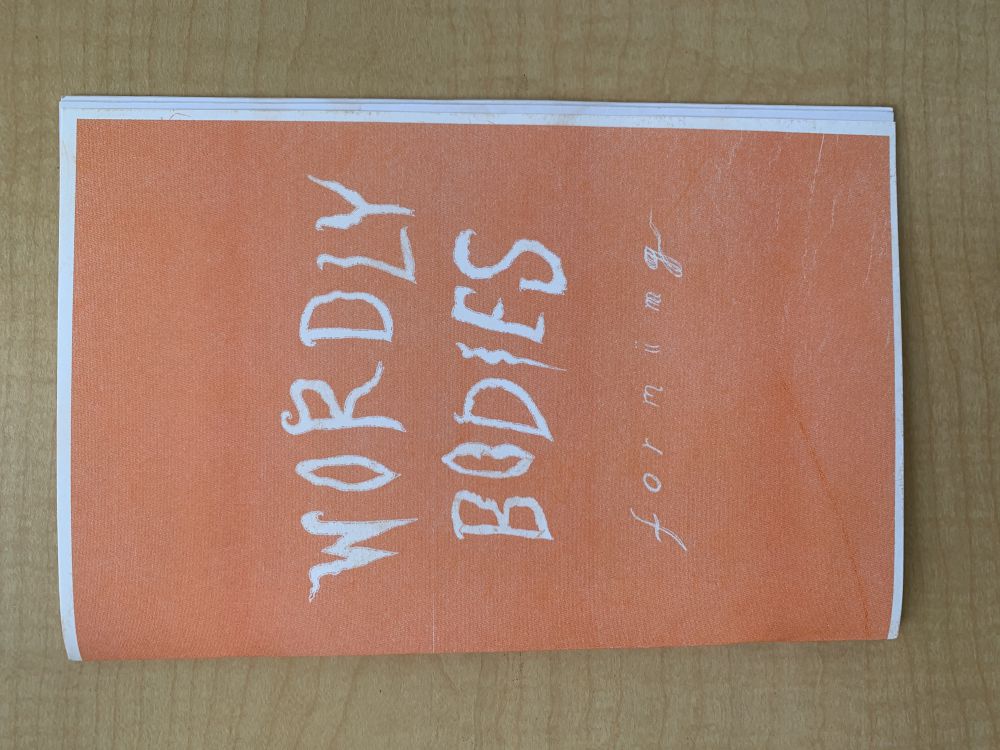 WORDLY
BODIES
forming